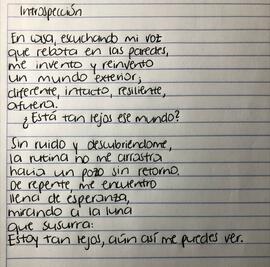 Introspección
En casa, escuchando mi voz
que rebota en las paredes,
me invento y reinvento
un mundo exterior,
diferente, intacto, resiliente,
afuera.
¿Está tan lejos ese mundo?
Sin ruido y descubriéndome,
la rutina no me arrastra
hacia un pozo sin retorno.
De repente, me encuentro
llena de esperanza,
mirando a la luna
que susurra:
Estoy tan lejos, aún así me puedes ver.